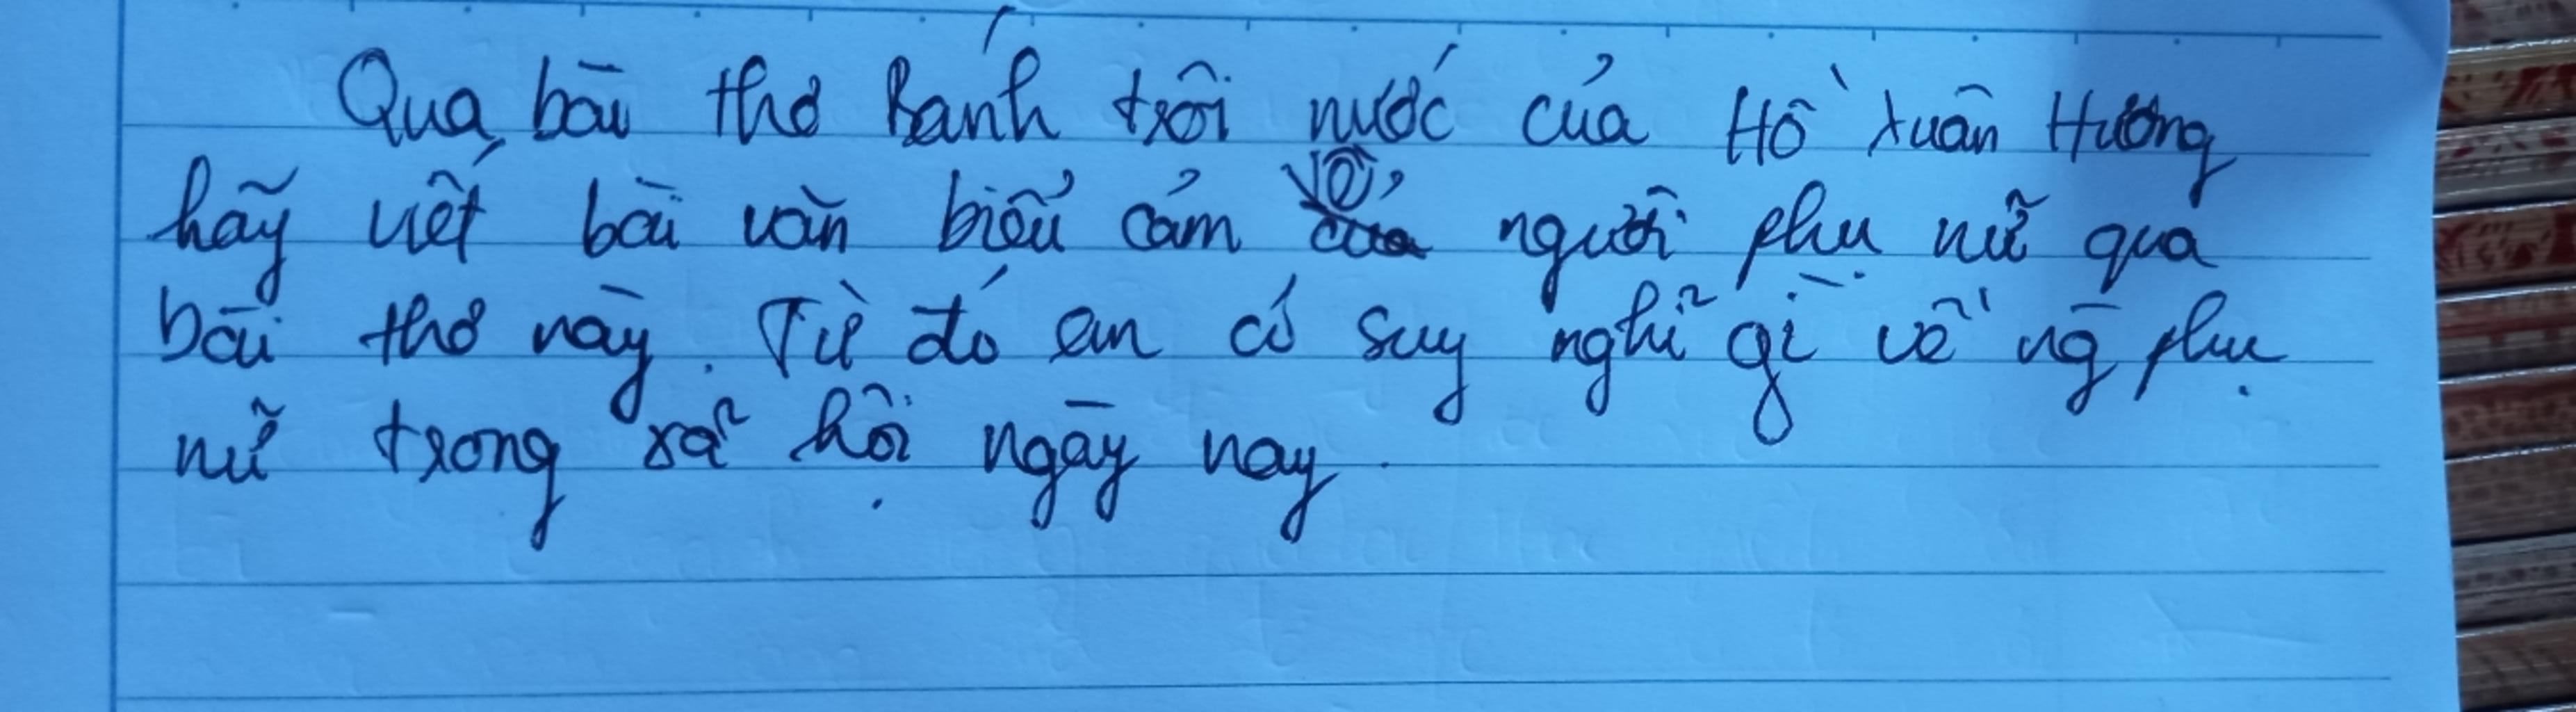 Qua bài thơ Bánh trôi nước của Hồ Xuân Hương
hãy viết bài văn biểu cảm về người phụ nữ qua
bài thơ này. Từ đó em có suy nghĩ gì về nḡ phụ
nữ trong xã hội ngày nay.